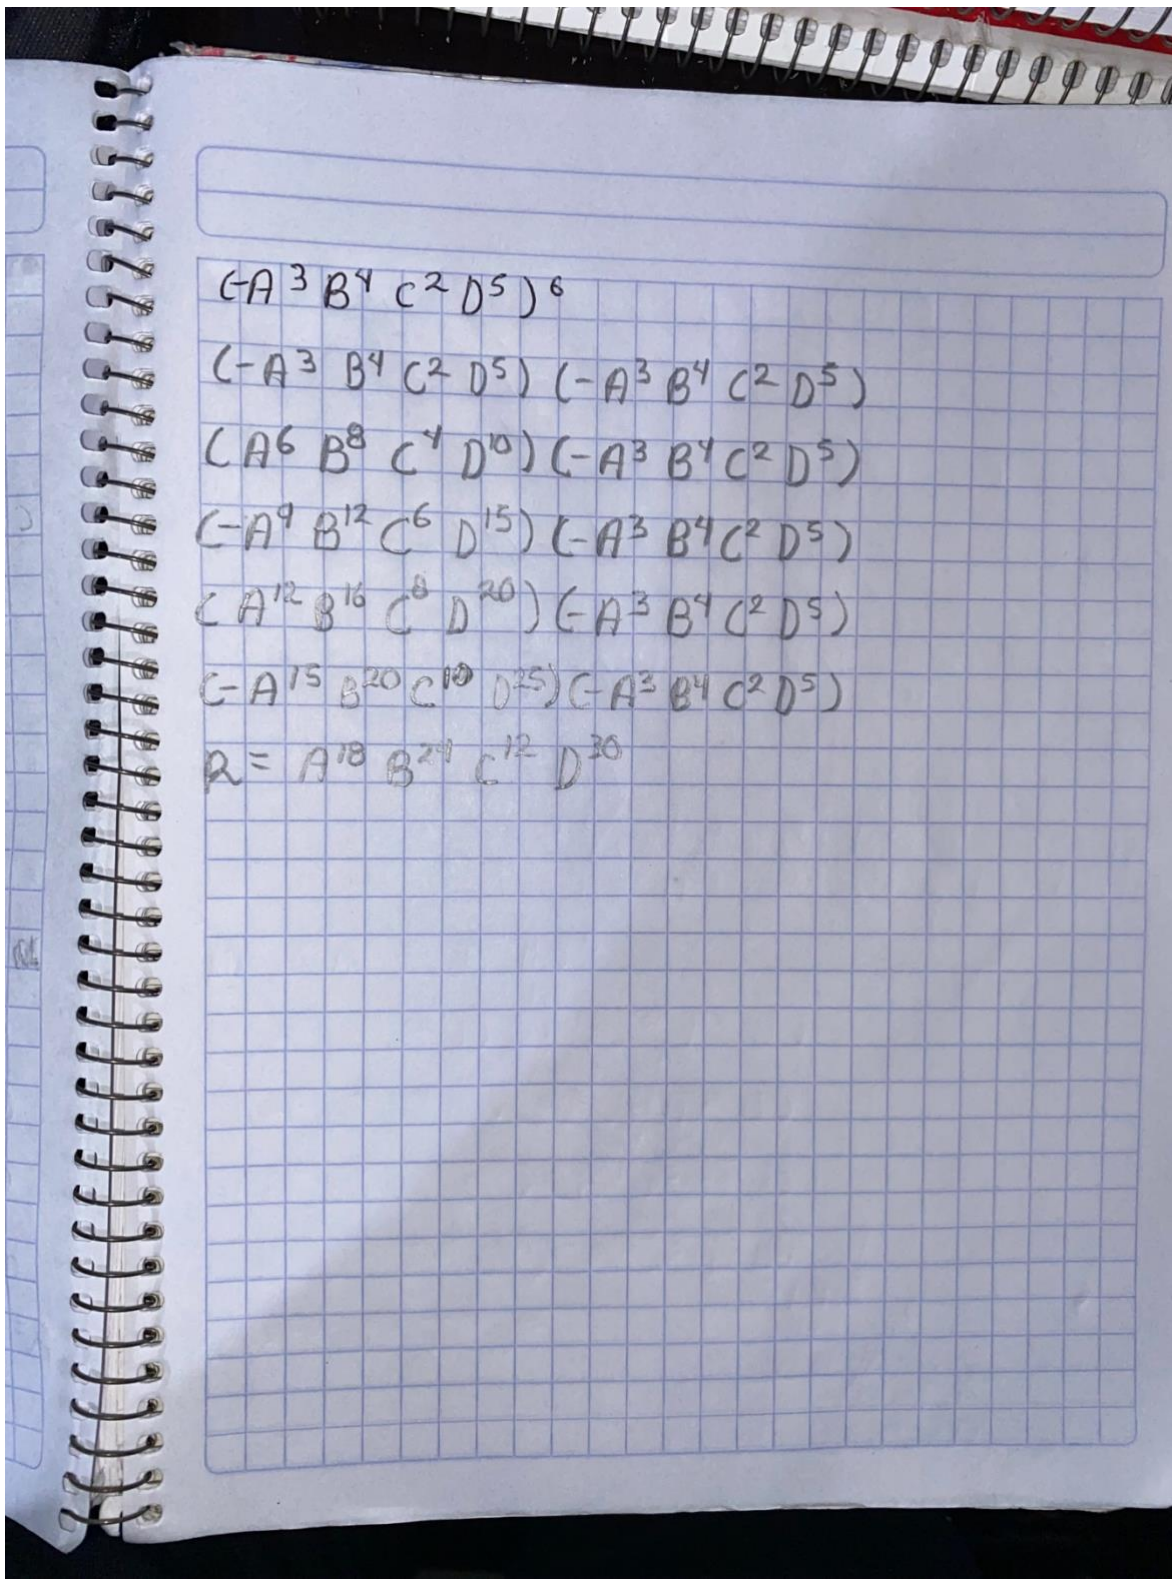 (-A³ B⁴ C² D⁵)⁶
(-A³ B⁴ C² D⁵) (-A³ B⁴ C² D⁵)
(A⁶ B⁸ C⁴ D¹⁰) (-A³ B⁴ C² D⁵)
(-A⁹ B¹² C⁶ D¹⁵) (-A³ B⁴ C² D⁵)
(A¹² B¹⁶ C⁸ D²⁰) (-A³ B⁴ C² D⁵)
(-A¹⁵ B²⁰ C¹⁰ D²⁵) (-A³ B⁴ C² D⁵)
R = A¹⁸ B²⁴ C¹² D³⁰